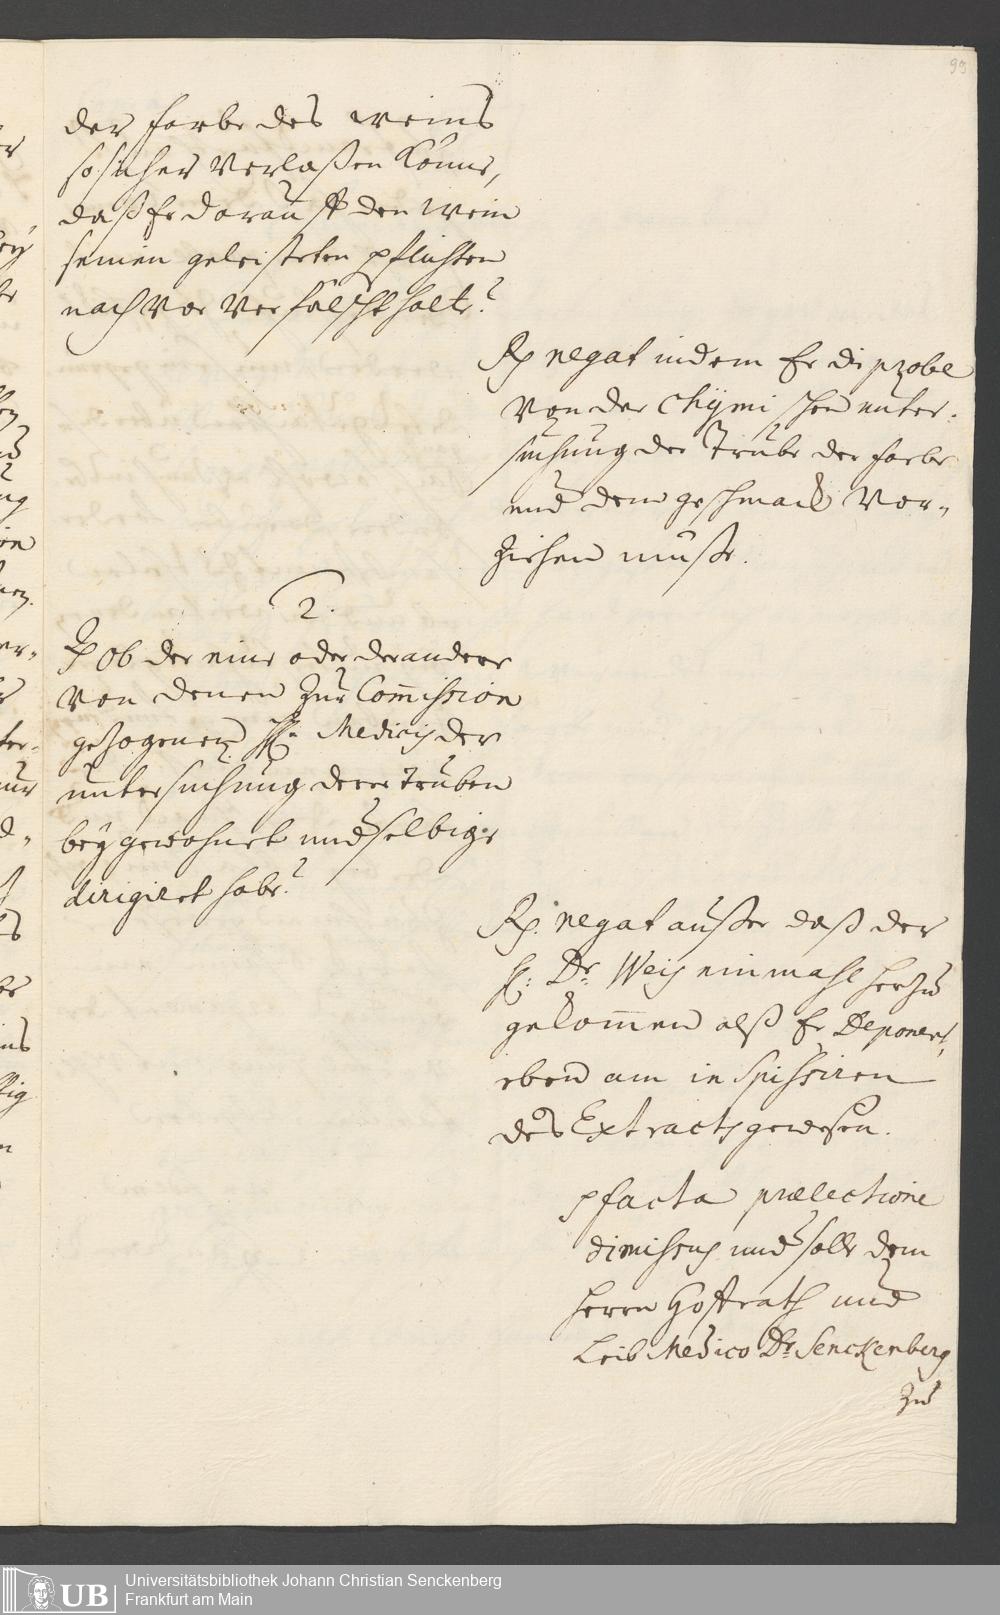 93
der farbe des weins
so sicher verlaßen könne,
daß Er darauff den wein
seinen geleisteten pflichten
nach vor verfälscht halte?
Rp negat indem Er die probe
von der chymischen unter-
suchung der Trübe der farbe
und dem geschmack vor-
ziehen müste.
2.
ob der eine oder der andere
von denen zur Com̄ission
gezogenen HH. Medicis der
untersuchung derer Trüben
beygewohnet und selbige
dirigiret habe?
Rp. negat außer daß der
H: Dr. Weis einmahl herzu
gekom̄en alß Er Deponent,
eben am inspissiren
des Extracts gewesen.
pfacta prælectione
dimissus und solle dem
Herrn Hoffrath und
Leib Medico Dr. Senckenberg
zu
UB
Universitätsbibliothek Johann Christian Senckenberg
Frankfurt am Main